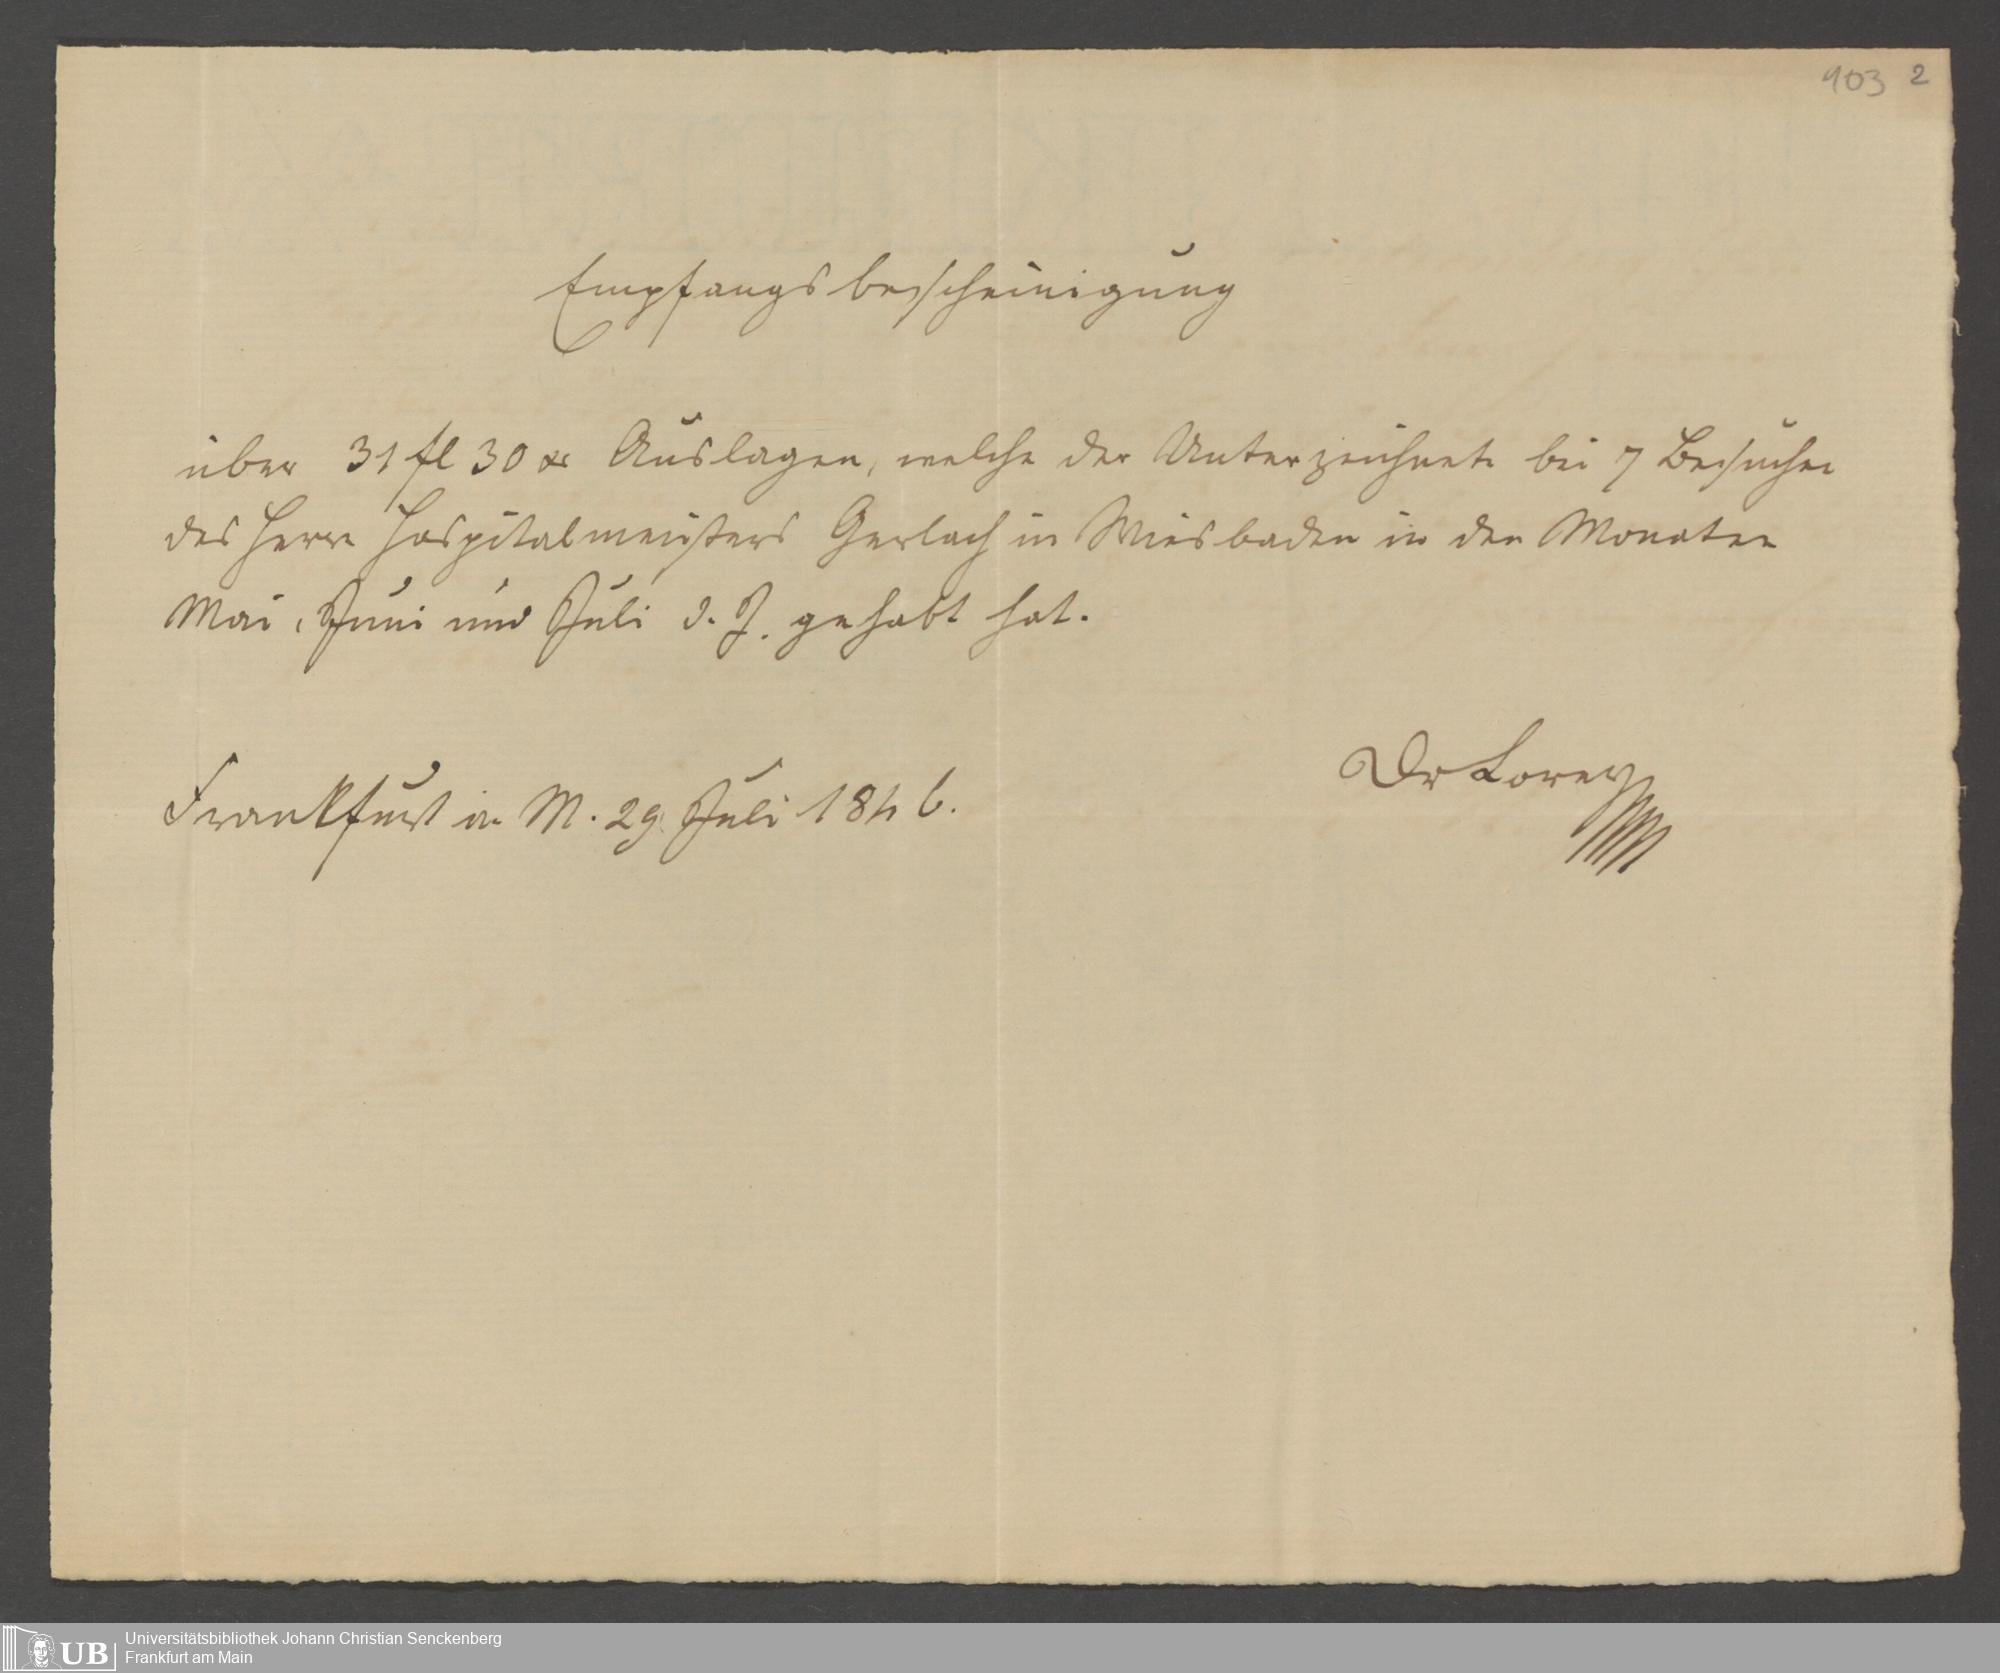 903 2
Empfangsbescheinigung
über 31 fl 30 xr Auslagen, welche der Unterzeichnete bei 7 Besuchen
des Herrn Hospitalmeisters Gerlach in Wiesbaden in den Monaten
Mai, Juni und Juli d. J. gehabt hat.
Dr Lorey
Frankfurt a. M. 29 Juli 1846.
UB
Universitätsbibliothek Johann Christian Senckenberg
Frankfurt am Main